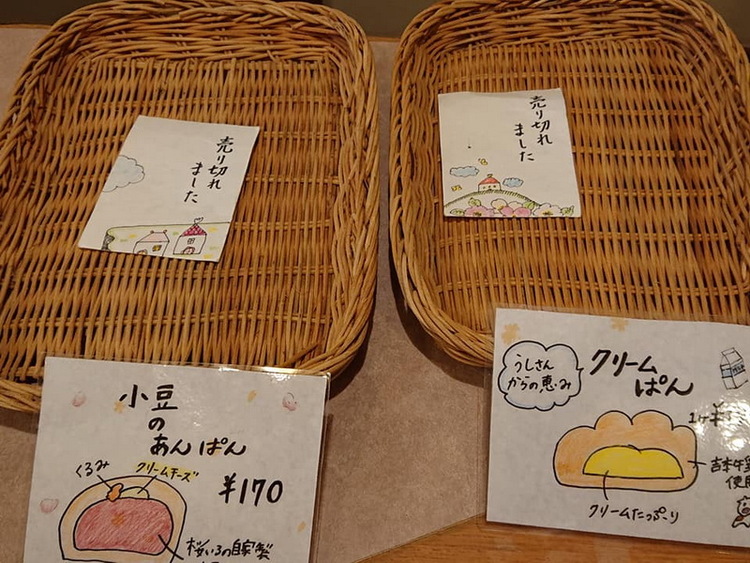 売り切れ
ました
売り切れ
ました
小豆
の
あんぱん
くるみ
クリームチーズ
¥170
桜いろの自家製
うしさん
からの恵み
クリーム
ぱん
クリームたっぷり
使用